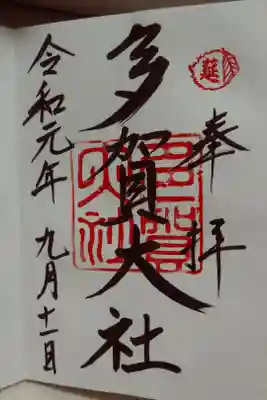 奉拝
延
多賀大社
多賀大社
令和元年 九月十一日